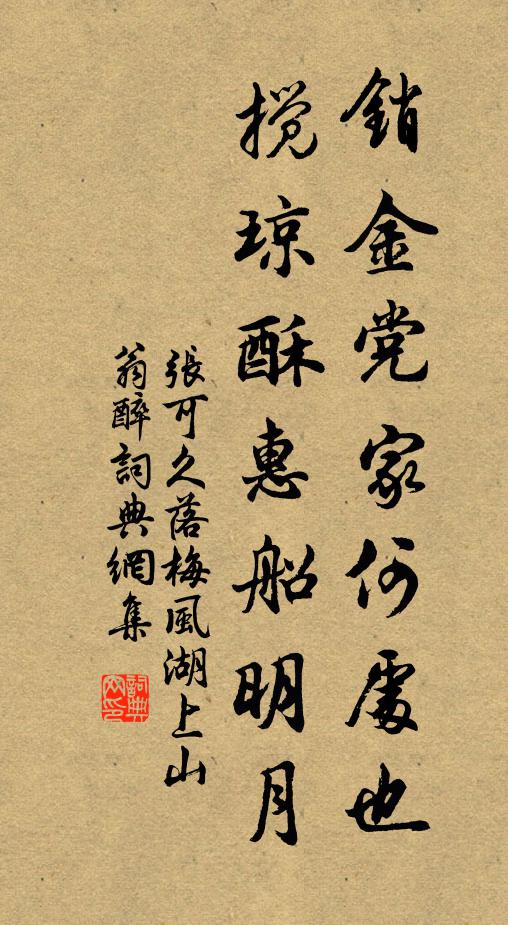 銷金党家何處也
攪琼酥惠船明月
張可久落梅風湖上山
翁醉詞典網集
詞典